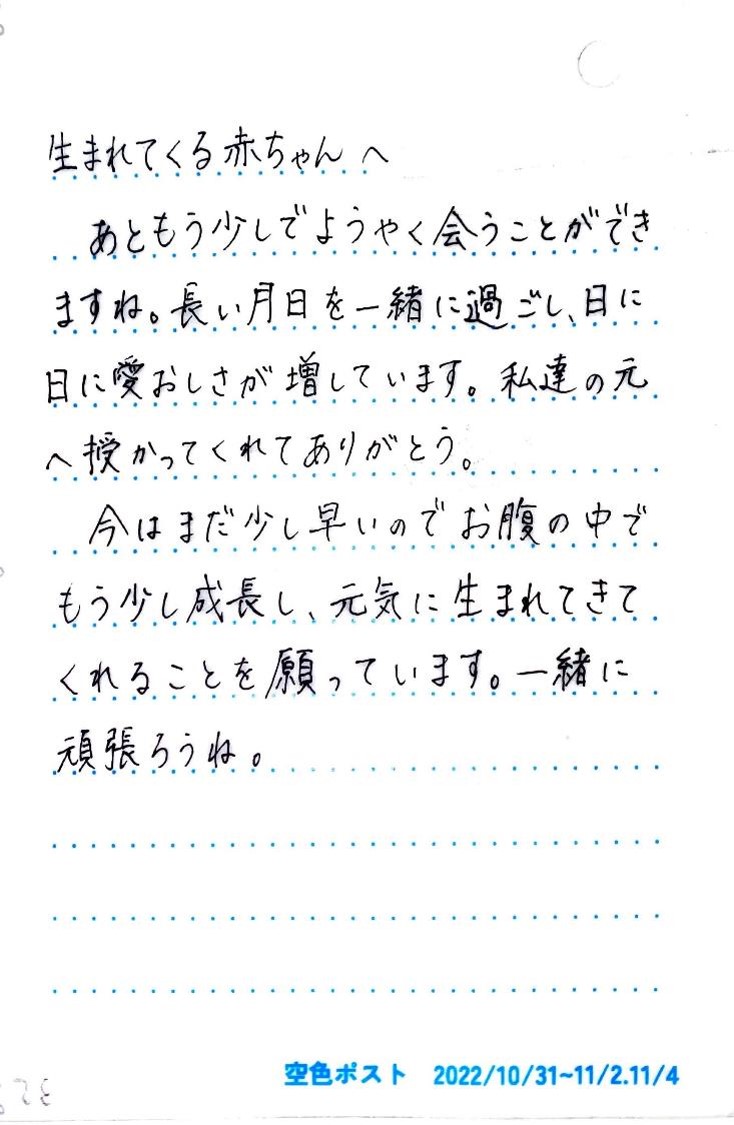 生まれてくる赤ちゃんへ
あともう少しでようやく会うことができ
ますね。長い月日を一緒に過ごし、日に
日に愛おしさが増しています。私達の元
へ授かってくれてありがとう。
今はまだ少し早いのでお腹の中で
もう少し成長し、元気に生まれてきて
くれることを願っています。一緒に
頑張ろうね。
空色ポスト 2022/10/31~11/2.11/4